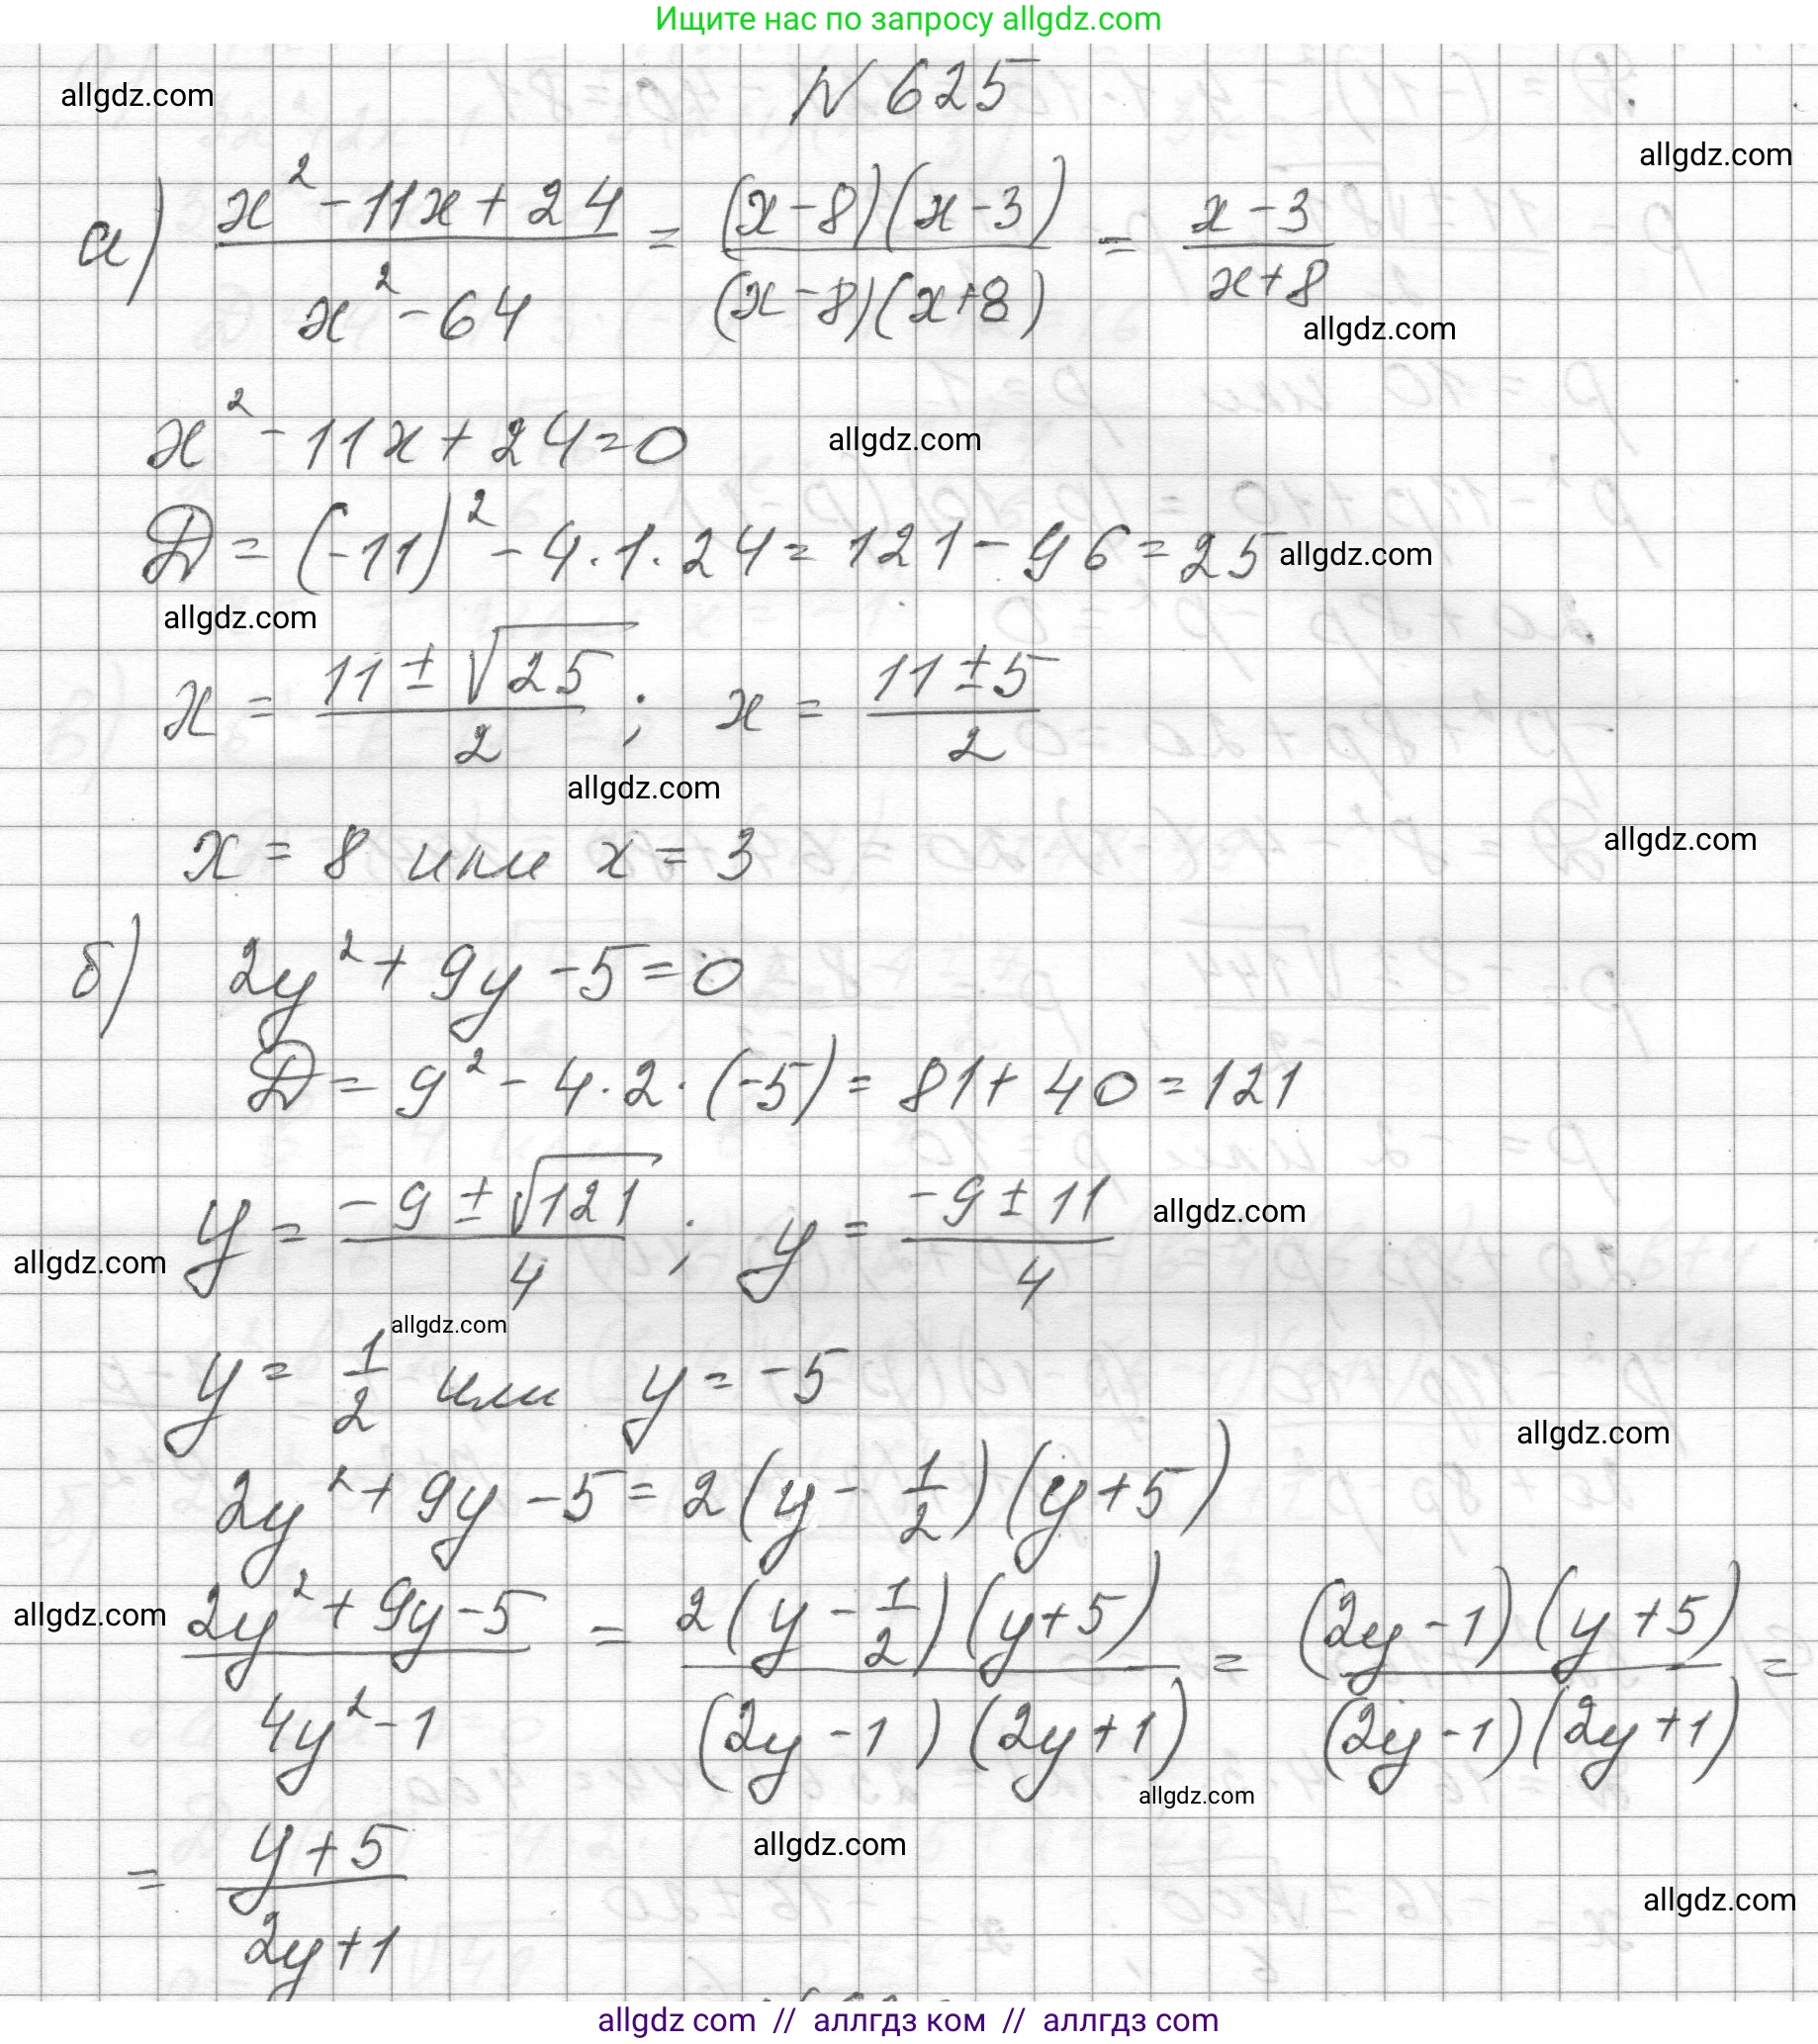 Ищите нас по запросу allgdz.com
allgdz.com
N 625
allgdz.com
а) (x² - 11x + 24)/(x² - 64) = ((x - 8)(x - 3))/((x - 8)(x + 8)) = (x - 3)/(x + 8)
allgdz.com
x² - 11x + 24 = 0
allgdz.com
D = (-11)² - 4 · 1 · 24 = 121 - 96 = 25
allgdz.com
allgdz.com
x = (11 ± √25)/2 ; x = (11 ± 5)/2
allgdz.com
x = 8 или x = 3
allgdz.com
б) 2y² + 9y - 5 = 0
D = 9² - 4 · 2 · (-5) = 81 + 40 = 121
y = (-9 ± √121)/4 ; y = (-9 ± 11)/4
allgdz.com
allgdz.com
allgdz.com
y = 1/2 или y = -5
allgdz.com
2y² + 9y - 5 = 2(y - 1/2)(y + 5)
allgdz.com
(2y² + 9y - 5)/(4y² - 1) = (2(y - 1/2)(y + 5))/((2y - 1)(2y + 1)) = ((2y - 1)(y + 5))/((2y - 1)(2y + 1)) =
allgdz.com
allgdz.com
= (y + 5)/(2y + 1)
allgdz.com
allgdz com // аллгдз ком // аллгдз com